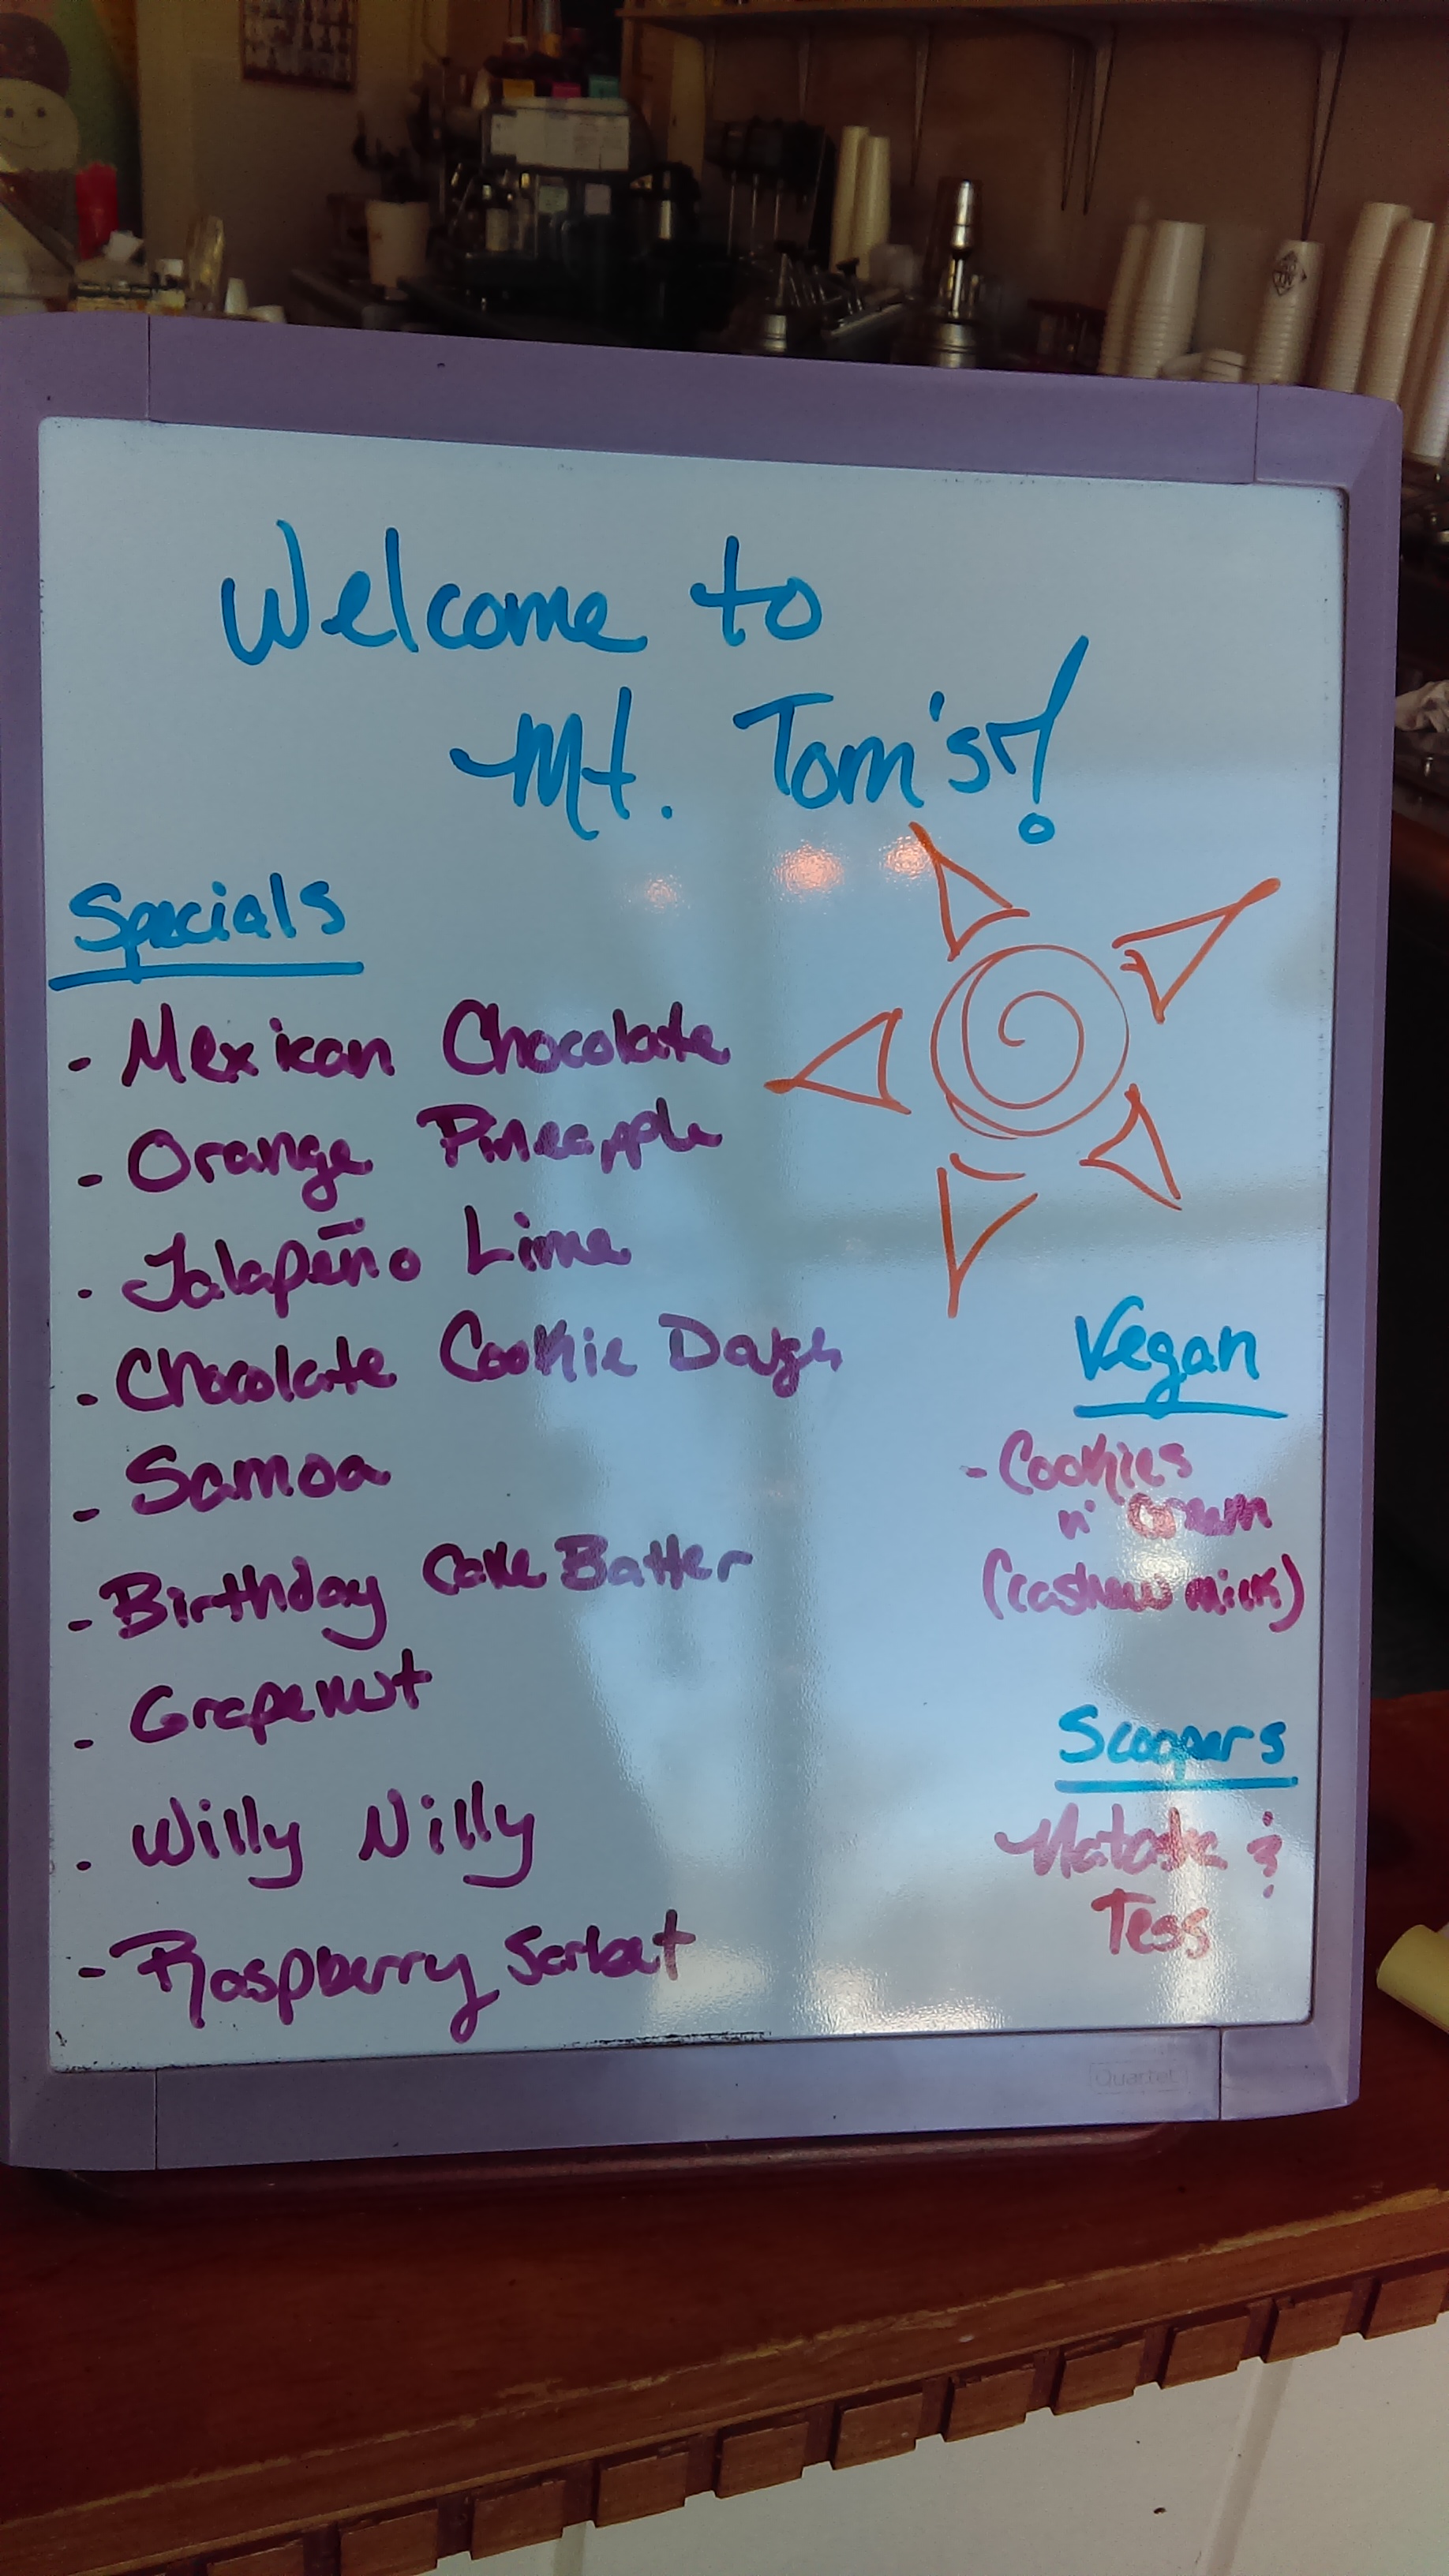 Welcome to
Mt. Tom's!
Specials
- Mexican Chocolate
- Orange Pineapple
- Jalapeño Lime
- Chocolate Cookie Dough
- Samoa
- Birthday Cake Batter
- Grapenut
- Willy Nilly
- Raspberry Sorbet
Vegan
- Cookies
n' Cream
(cashew milk)
Scoopers
&
Tess
Quartet